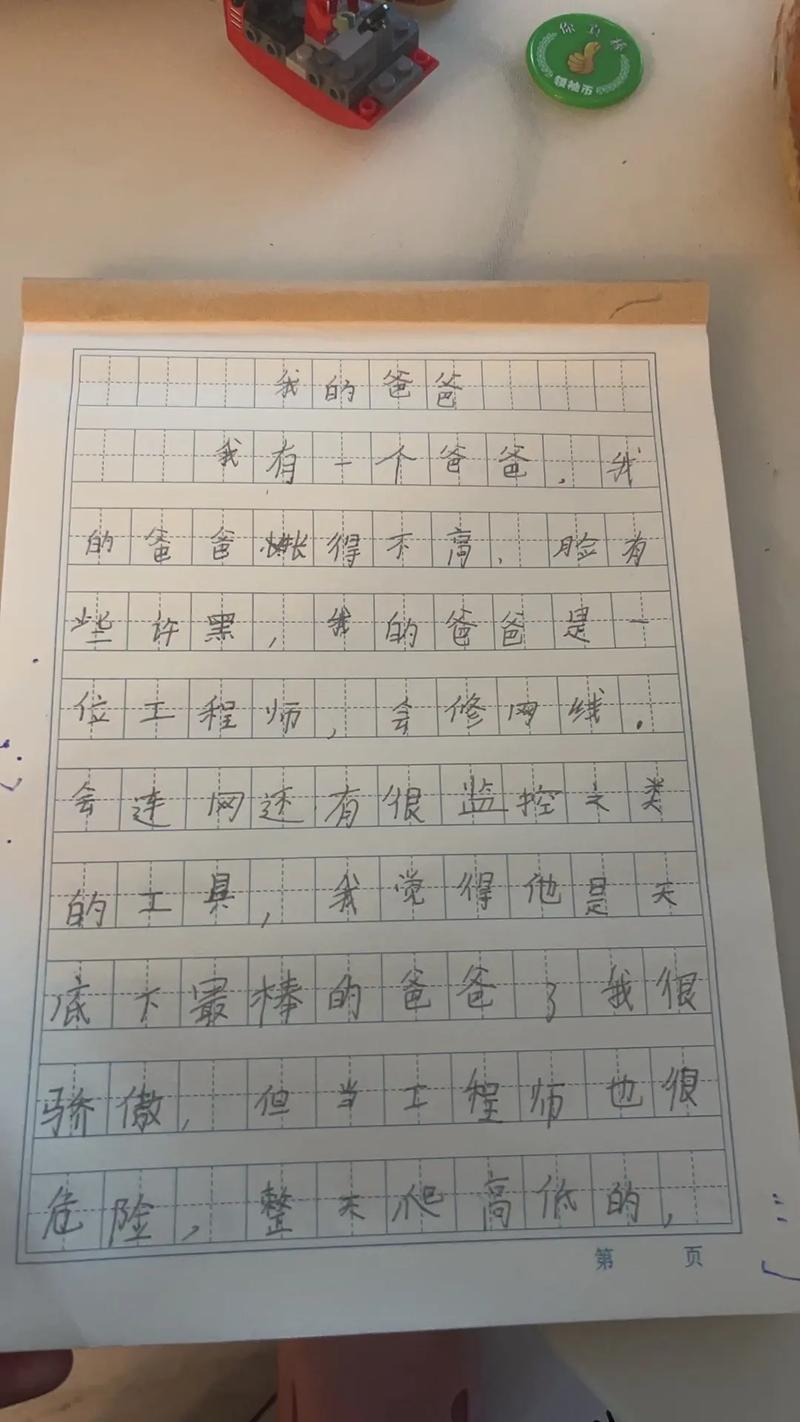 你真棒
领袖币
我的爸爸
我有一个爸爸.我
的爸爸长得不高.脸有
些许黑,我的爸爸是一
位工程师,会修网线.
会连网还有很监控之类
的工具,我觉得他是天
底下最棒的爸爸了我很
骄傲,但当工程师也很
危险,整天爬高低的,
第 页